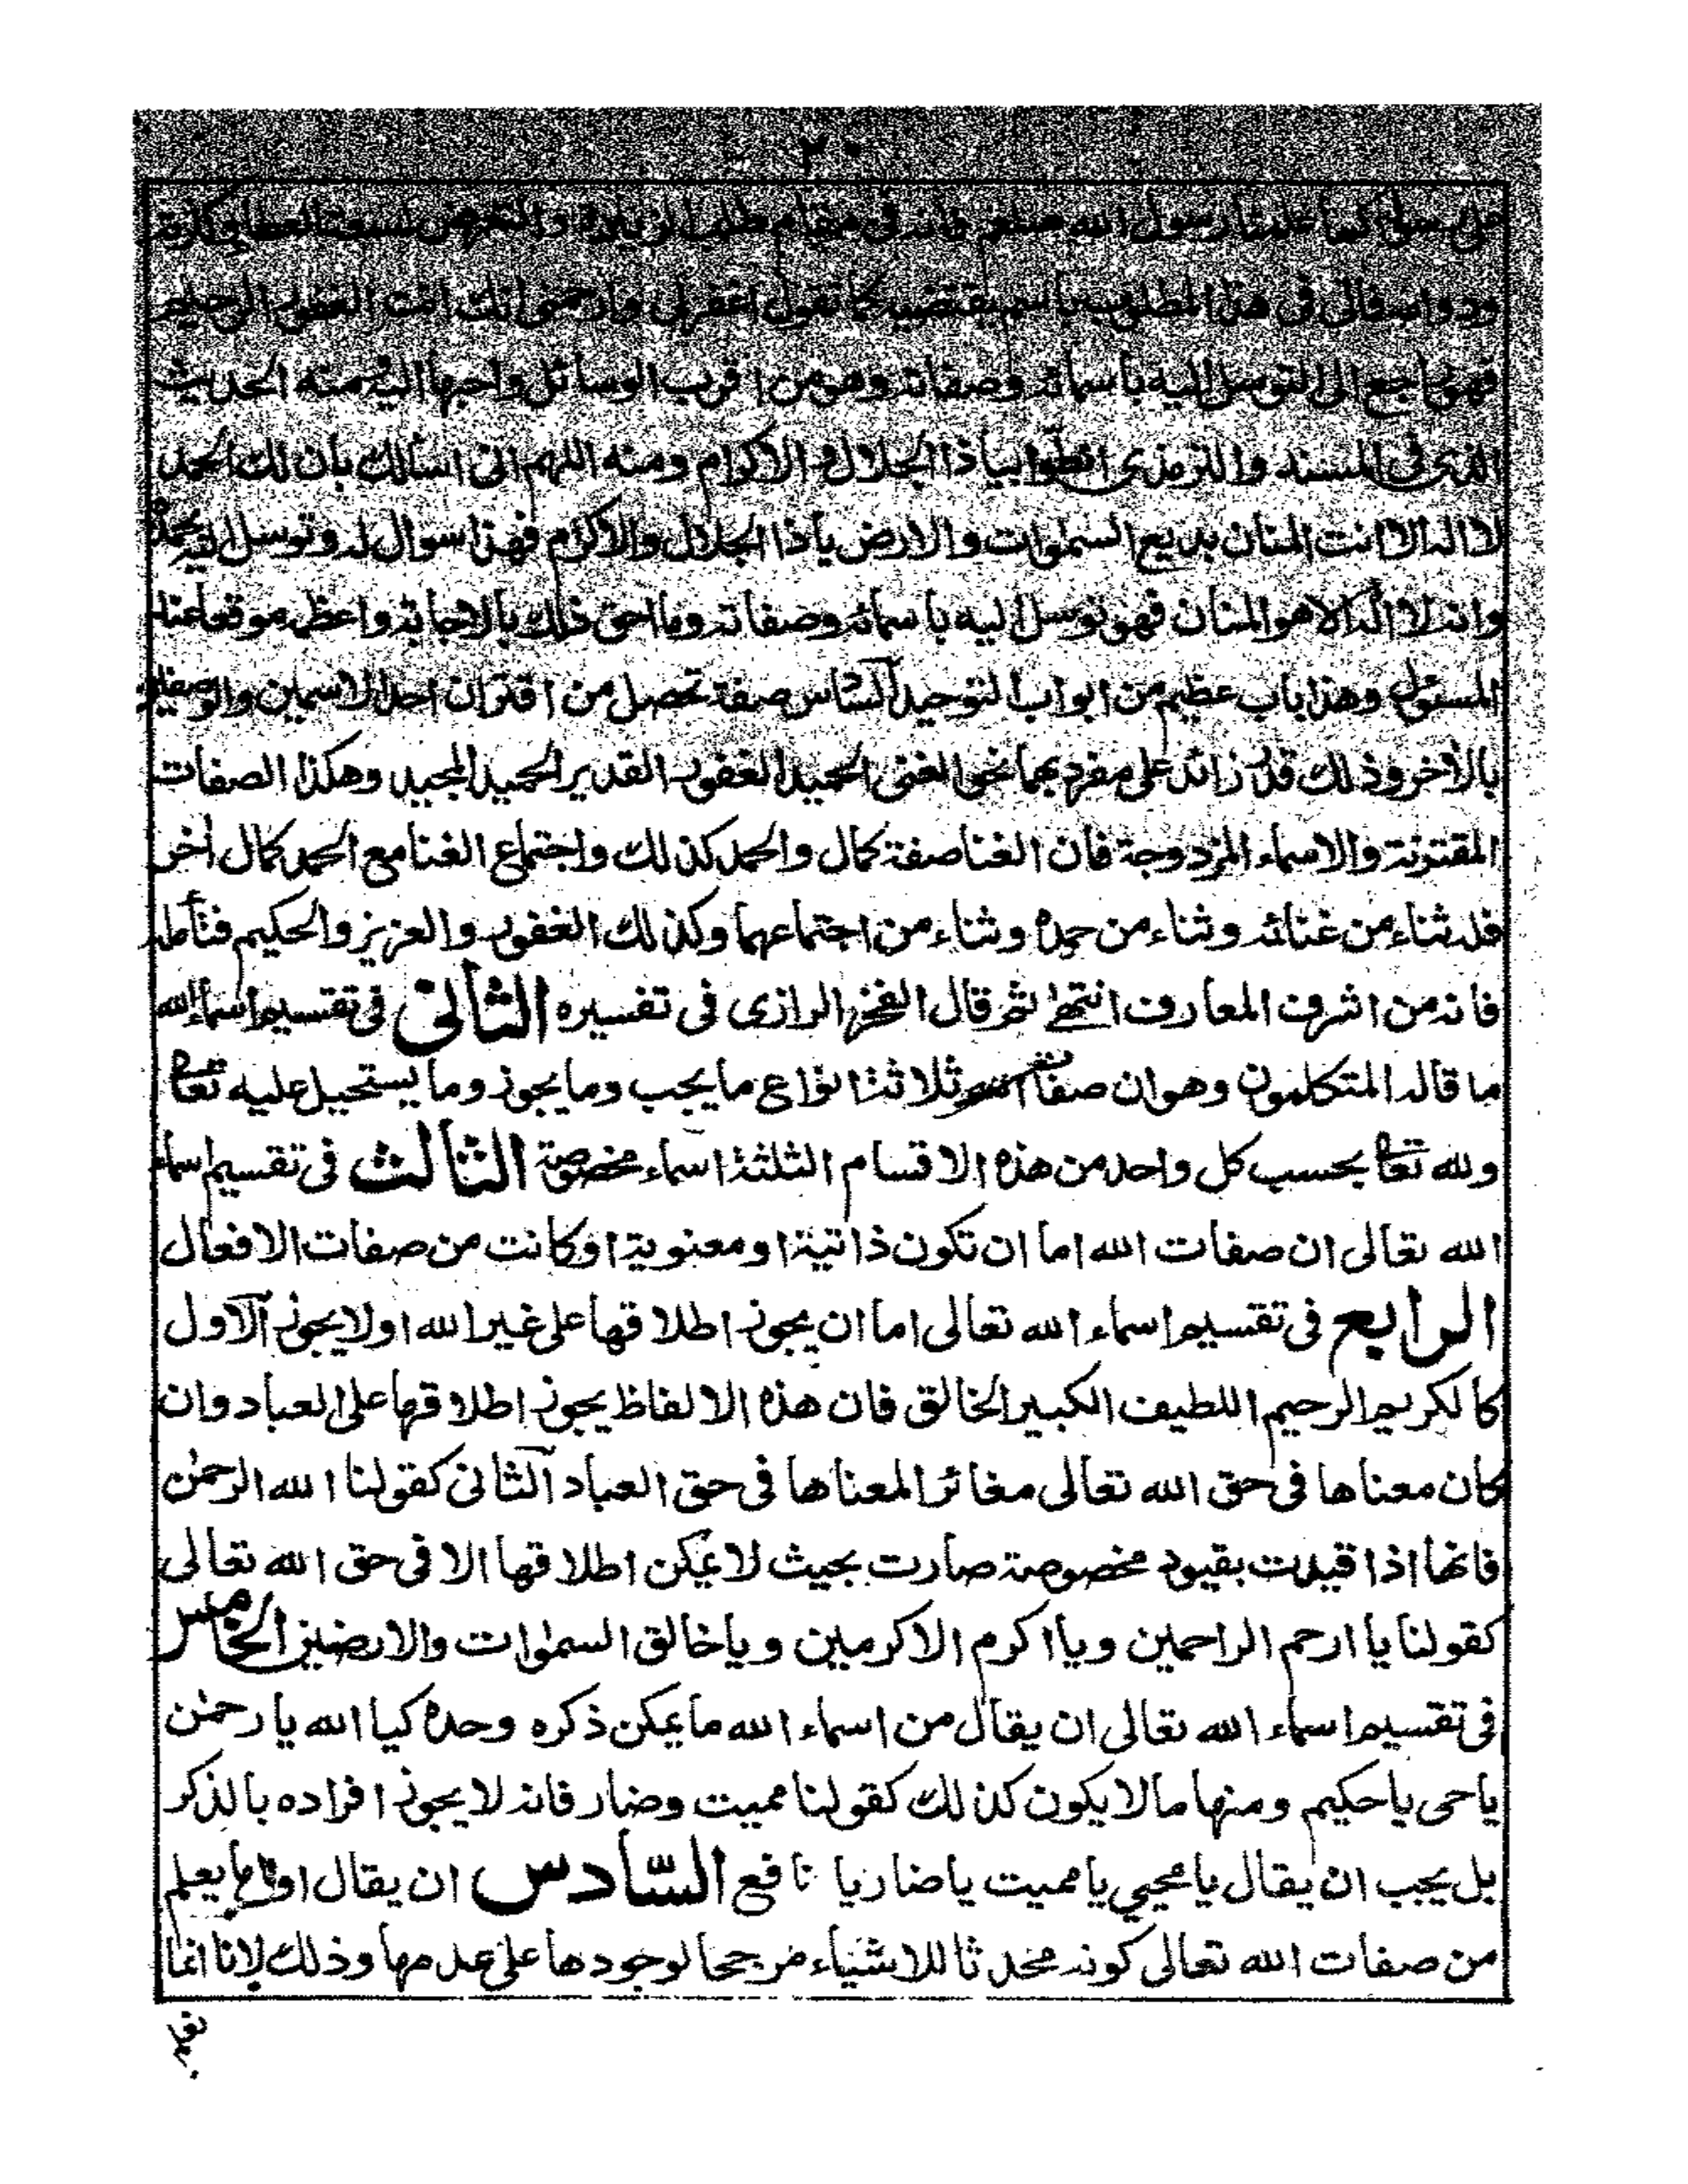 ٢٠
على رسوله كما علمنا رسول الله صلعم فانه فى مقام طلب المزيد والتعرض لسعة العطاء وكثرته
ودوامه فاتى فى هذا المطلوب باسم يقتضيه كما تقول اغفرلى وارحمنى انك انت الغفور الرحيم
فهو راجع الى التوسل اليه باسمائه وصفاته وهو من اقرب الوسائل واحبها اليه ومنه الحديث
الذى فى المسند والترمذى الظوا بياذا الجلال والاكرام ومنه اللهم انى اسألك بان لك الحمد
لا اله الا انت المنان بديع السموات والارض ياذا الجلال والاكرام فهذا سوال له وتوسل اليه بحمده
وانه لا اله الا هو المنان فهو توسل اليه باسمائه وصفاته وما احق ذلك بالاجابة واعظمه موقعا عند
المسئول وهذا باب عظيم من ابواب التوحيد السادس صفة تحصل من اقتران احد الاسمين والوصفين
بالاخر وذلك قدر زائد على مفرديهما نحو الغنى الحميد الغفور القدير الحميد المجيد وهكذا الصفات
المقترنة والاسماء المزدوجة فان الغنا صفة كمال والحمد كذلك واجتماع الغنا مع الحمد كمال اخر
فله ثناء من غنائه وثناء من حمده وثناء من اجتماعهما وكذلك الغفور والعزيز والحكيم فتأمله
فانه من اشرف المعارف انتهى ثم قال الفخر الرازى فى تفسيره الثانى فى تقسيم اسماء الله
ما قاله المتكلمون وهو ان صفات الله تعالى ثلاثة انواع ما يجب وما يجوز وما يستحيل عليه تعالى
ولله تعالى بحسب كل واحد من هذه الاقسام الثلثة اسماء مخصوصة الثالث فى تقسيم اسماء
الله تعالى ان صفات الله اما ان تكون ذاتية او معنوية او كانت من صفات الافعال
الرابع فى تقسيم اسماء الله تعالى اما ان يجوز اطلاقها على غير الله اولا يجوز الاول
كالكريم الرحيم اللطيف الكبير الخالق فان هذه الالفاظ يجوز اطلاقها على العباد وان
كان معناها فى حق الله تعالى مغائرا لمعناها فى حق العباد الثانى كقولنا الله الرحمن
فانها اذا قيدت بقيود مخصوصة صارت بحيث لا يمكن اطلاقها الا فى حق الله تعالى
كقولنا يا ارحم الراحمين ويا اكرم الاكرمين ويا خالق السموات والارضين الخامس
فى تقسيم اسماء الله تعالى ان يقال من اسماء الله ما يمكن ذكره وحده كيا الله يا رحمن
يا حى يا حكيم ومنها ما لا يكون كذلك كقولنا مميت وضار فانه لا يجوز افراده بالذكر
بل يجب ان يقال يا محيي يا مميت يا ضار يا نافع السّادس ان يقال اول ما يعلم
من صفات الله تعالى كونه محدثا للاشياء مرجحا لوجودها على عدمها وذلك لانا انما
نعلم